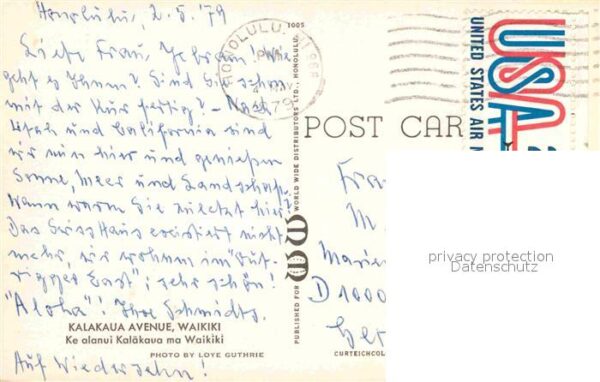 Honolulu, 2.5.79
Liebe Frau, wie
geht es Ihnen? Sind Sie schon
mit der Kur fertig? - Nach
Utah und California sind
wir nun hier und genießen
Sonne, Meer und Landschaft.
Wann waren Sie zuletzt hier?
Das Swiss Haus existiert nicht
mehr, wir wohnen im "Out-
rigger East"; sehr schön!
"Aloha"! Ihre Schmidts.
KALAKAUA AVENUE, WAIKIKI
Ke alanui Kalākaua ma Waikiki
PHOTO BY LOYE GUTHRIE
Auf Wiedersehn!
1005
PUBLISHED FOR WORLD WIDE DISTRIBUTORS LTD., HONOLULU
HONOLULU
PM
1979
POST CAR
USA
UNITED STATES AIR
Fra
M
Marie
D 1000
Ger
CURTEICHCOL
privacy protection
Datenschutz